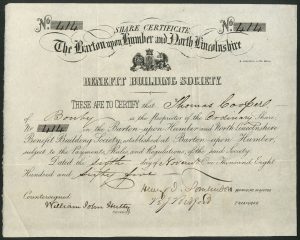 SHARE CERTIFICATE
No. 414 No. 414
The Barton upon Humber and North Lincolnshire
BENEFIT BUILDING SOCIETY.
THESE ARE TO CERTIFY that Thomas Cooper
of Bonby is the Proprietor of the Ordinary Share
No 414 in the Barton-upon-Humber and North Lincolnshire
Benefit Building Society, established at Barton-upon-Humber,
subject to the Payments, Rules, and Regulations of the said Society.
Dated the Sixth day of One Thousand Eight
Hundred and Sixty five
Henry
Countersigned
William John